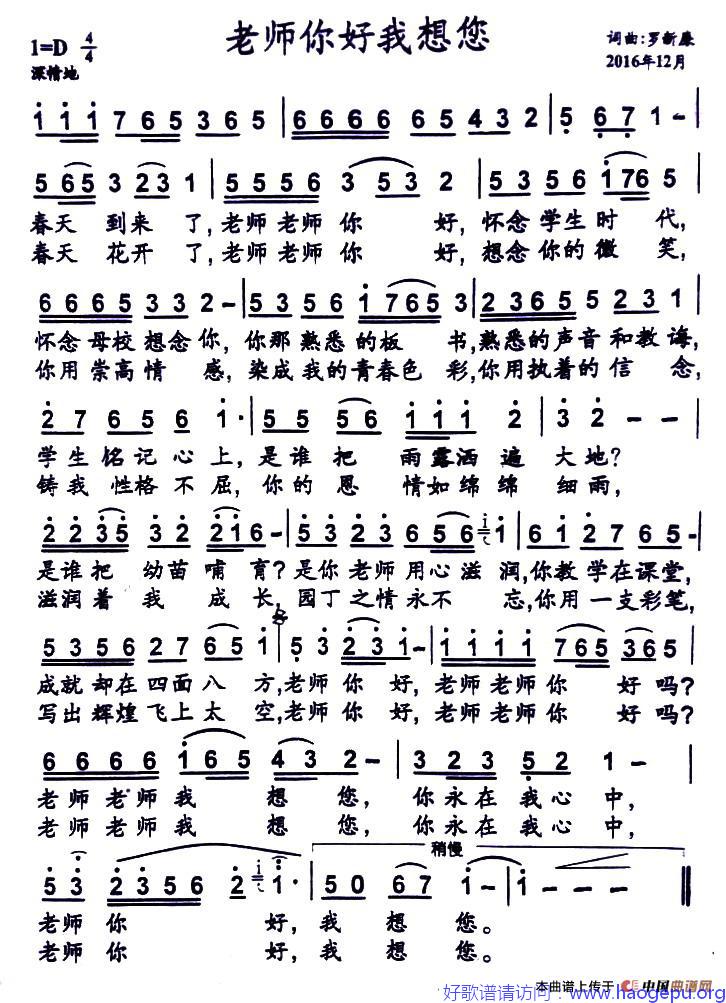 老师你好我想您
1=D 4/4
词曲:罗新廉
深情地
2016年12月
1 1 1 7 6 5 3 6 5 | 6 6 6 6 6 5 4 3 2 | 5 6 7 1 - |
5 6 5 3 2 3 1 | 5 5 5 6 3 5 3 2 | 5 3 5 6 1 7 6 5 |
春天 到来 了,老师 老师 你 好,怀念 学生 时 代,
春天 花开 了,老师 老师 你 好,想念 你的 微 笑,
6 6 6 5 3 3 2 - | 5 3 5 6 1 7 6 5 3 | 2 3 6 5 2 3 1 |
怀念 母校 想念 你, 你那 熟悉 的板 书,熟悉的声音和教诲,
你用 崇高 情 感, 染成 我的青春色 彩,你用执着的信 念,
2 7 6 5 6 1· | 5 5 5 6 1 1 1 2 | 3 2 - - |
学生 铭记 心上,是谁 把 雨露洒 遍 大地?
铸我 性格 不屈,你的 恩 情如绵 绵 细雨,
2 2 3 5 3 2 2 1 6 - | 5 3 2 3 6 5 6 1 | 6 1 2 7 6 5 - |
是谁把 幼苗 哺 育?是你 老师 用心 滋 润,你教学在课堂,
滋润着 我 成 长,园丁 之情 永不 忘,你用一支彩笔,
5 3 5 6 2 7 6 5 1 | 5 3 2 3 1 - | 1 1 1 1 7 6 5 3 6 5 |
成就 却在 四面 八 方,老师 你 好,老师 老师 你 好吗?
写出 辉煌 飞上 太 空,老师 你 好,老师 老师 你 好吗?
6 6 6 6 1 6 5 4 3 2 - | 3 2 2 3 5 2 1 - |
老师 老师 我 想 您, 你永 在 我心 中,
老师 老师 我 想 您, 你永 在 我心 中,
稍慢
5 3 2 3 5 6 2 1· | 5 0 6 7 1 - | 1 - - - |
老师 你 好,我 想 您。
老师 你 好,我 想 您。
本曲谱上传于 中国曲谱网
好歌谱请访问:www.haogepu.org